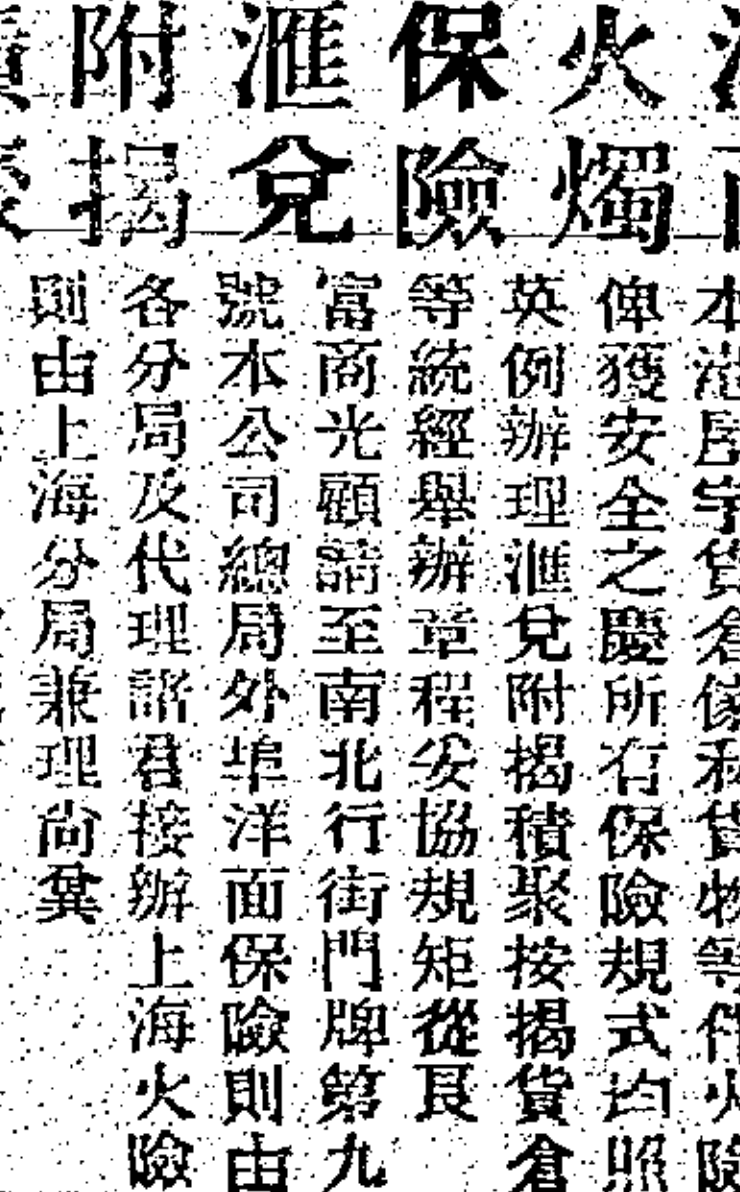 火燭
保險
滙兌
附揭
本港屋宇貨倉傢私貨物等件火險
俾獲安全之慶所有保險規式均照
英例辦理滙兌附揭積聚按揭貨倉
等統經舉辦章程妥協規矩從良
富商光顧請至南北行街門牌第九
號本公司總局外埠洋面保險則由
各分局及代理諮君接辦上海火險
則由上海分局兼理尚冀